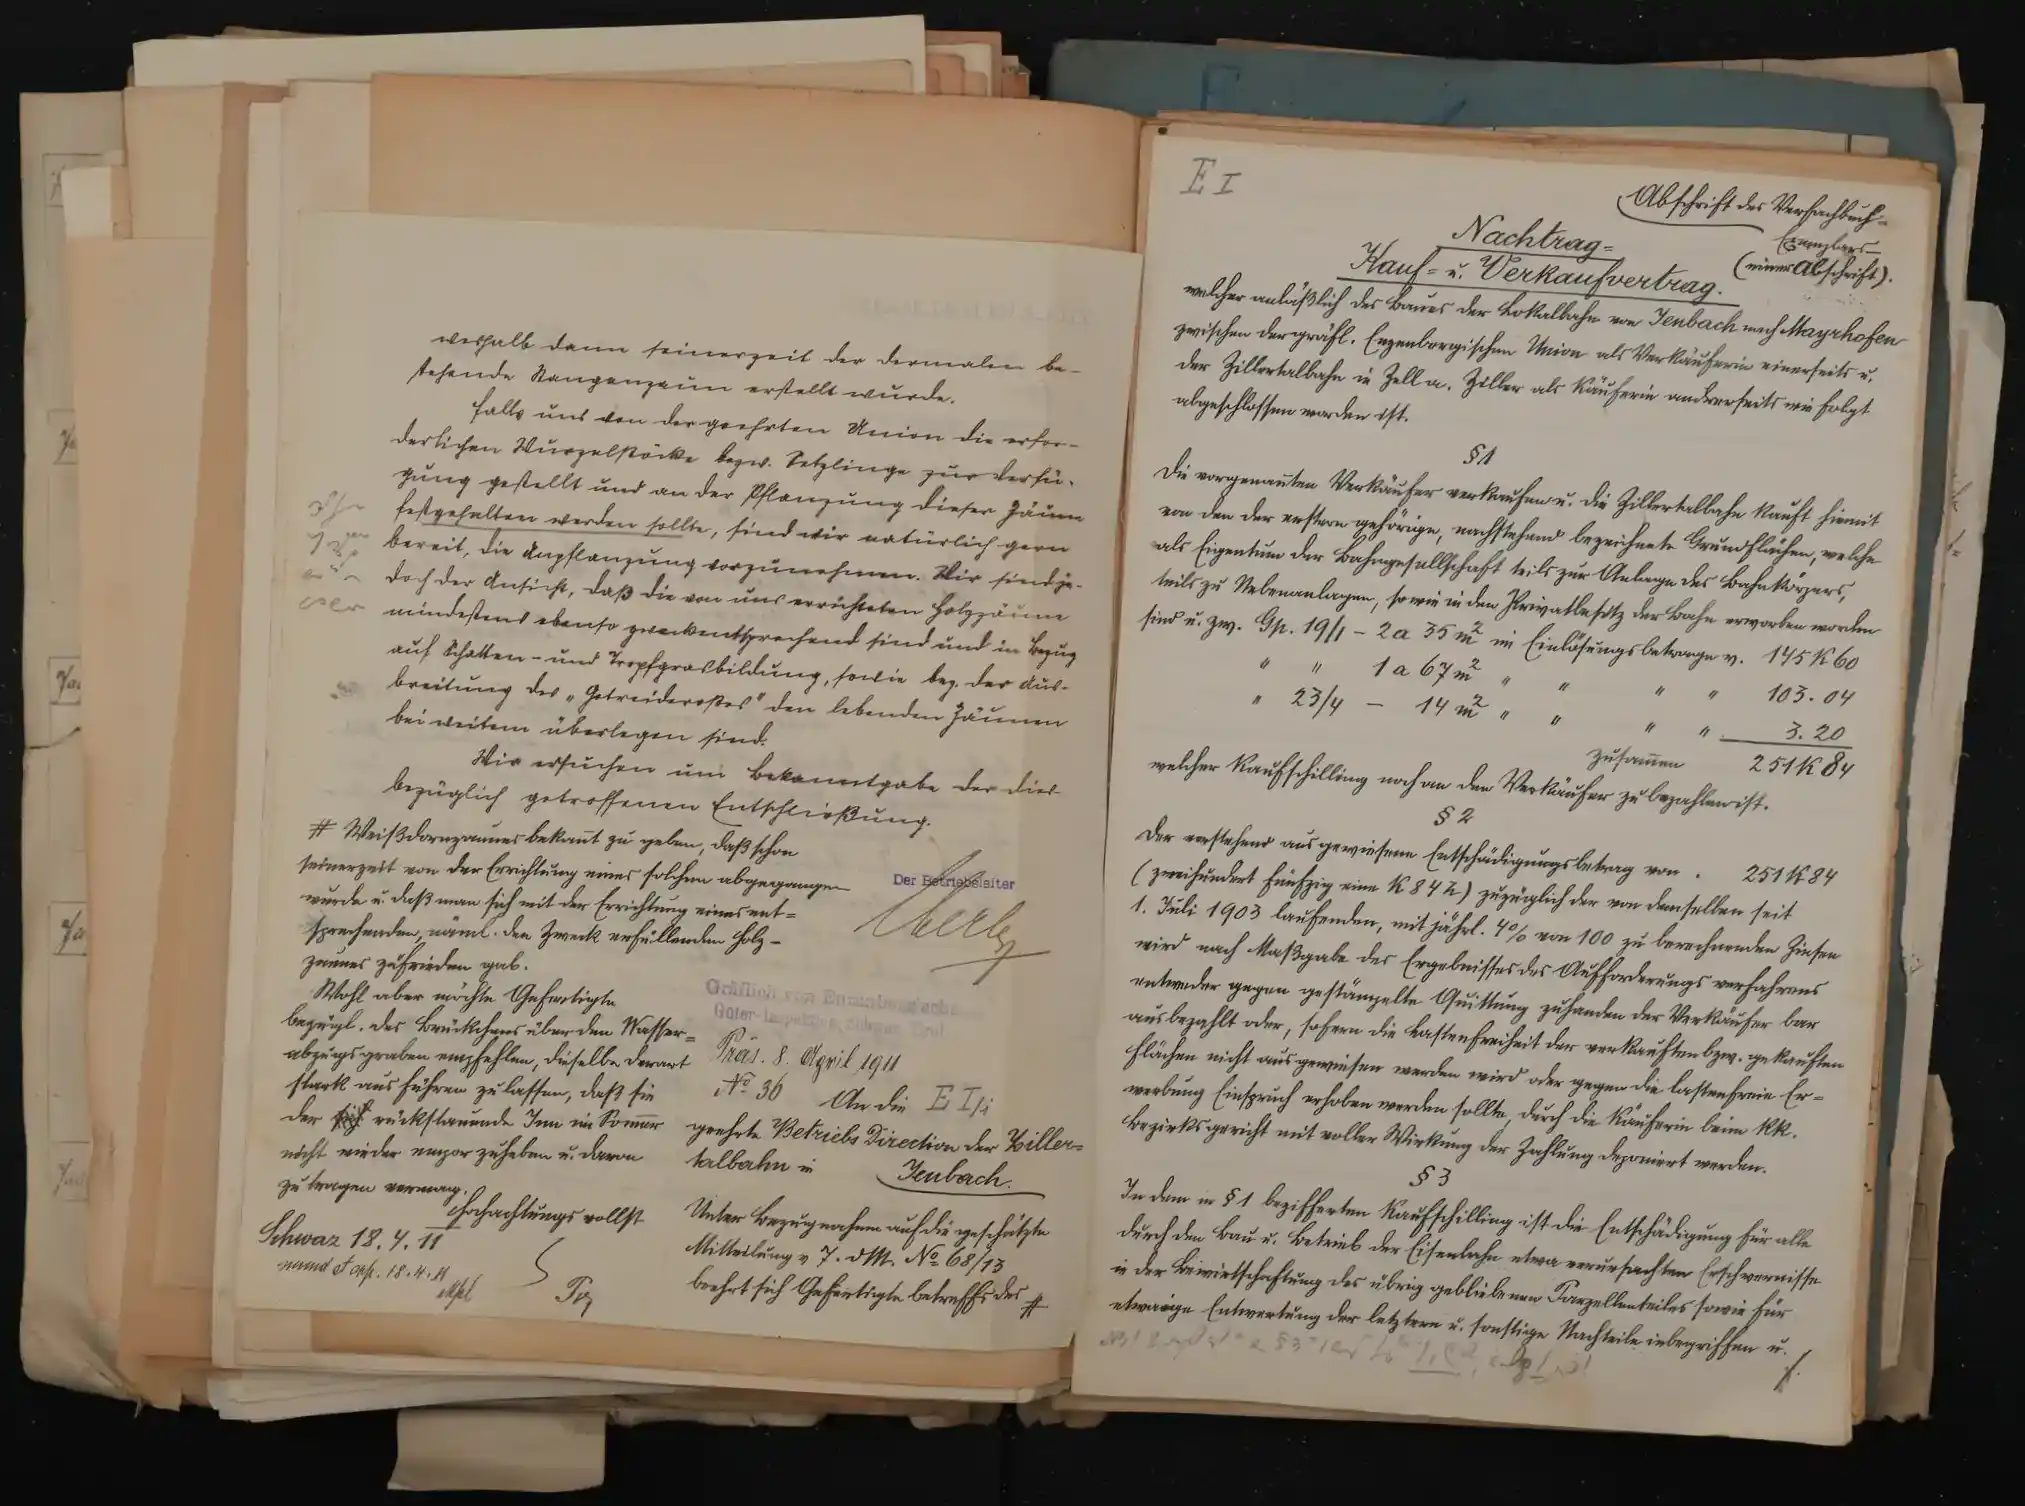 weshalb dann seinerzeit der dermalen be-
stehende Stangenzaun erstellt wurde.
Falls uns von der geehrten Union die erfor-
derlichen Wurzelstöcke bezw. Setzlinge zur Verfü-
gung gestellt und an der Pflanzung dieser Zäune
festgehalten werden sollte, sind wir natürlich gern
bereit, die Anpflanzung vorzunehmen. Wir sind je-
doch der Ansicht, daß die von uns errichteten Holzzäune
mindestens ebenso zweckentsprechend sind und in Bezug
auf Schatten- und Tropfgrasbildung, sowie bez. der Aus-
breitung des „Getreiderostes" den lebenden Zäunen
bei weitem überlegen sind.
Wir ersuchen um Bekanntgabe der dies-
bezüglich getroffenen Entschließung.
Der Betriebsleiter
# Weißdornzaunes bekannt zu geben, daß schon
seinerzeit von der Errichtung eines solchen abgegangen
wurde u. daß man sich mit der Errichtung eines ent=
sprechenden, näml. den Zweck erfüllenden Holz-
zaunes zufrieden gab.
Wohl aber möchte Gefertigte
bezügl. des Brückchens über den Wasser=
abzugsgraben empfehlen, dieselbe derart
stark ausführen zu lassen, daß sie
der rückstauende Inn im Sommer
nicht wieder emporzuheben u. davon
zu tragen vermag.
Hochachtungsvollst
Schwaz 18.4.11
Gräflich von Enzenberg'sche
Präs. 8. April 1911
No 36
An die E I/i
geehrte Betriebs Direction der Ziller=
talbahn in
Jenbach.
Unter Bezugnahme auf die geschätzte
Mitteilung v 7. dM. No 68/13
beehrt sich Gefertigte betreffs des #
E I
Abschrift des Verfachbuch=
Exemplars
(einer Abschrift).
Nachtrag=
Kauf= u. Verkaufvertrag.
welcher anläßlich des Baues der Lokalbahn von Jenbach nach Mayrhofen
zwischen der gräfl. Enzenbergischen Union als Verkäuferin einerseits u.
der Zillertalbahn in Zell a. Ziller als Käuferin andrerseits wie folgt
abgeschlossen worden ist.
§ 1
Die vorgenannten Verkäufer verkaufen u. die Zillertalbahn kauft hiemit
von den der erstern gehörige, nachstehend bezeichnete Grundflächen, welche
als Eigentum der Bahngesellschaft teils zur Anlage des Bahnkörpers,
teils zu Nebenanlagen, sowie in den Privatbesitz der Bahn erworben worden
sind u. zw. Gp. 19/1 - 2 a 35 m² im Einlösungsbetrage v. 145 K 60
" " 1 a 67 m² " " " " 103.04
" 23/4 - 14 m² " " " " 3.20
zusammen 251 K 84
welcher Kaufschilling noch an den Verkäufer zu bezahlen ist.
§ 2
Der vorstehend ausgewiesene Entschädigungsbetrag von . 251 K 84
(zweihundert fünfzig eine K 84 h) zuzüglich der von demselben seit
1. Juli 1903 laufenden, mit jährl. 4% von 100 zu berechnenden Zinsen
wird nach Maßgabe des Ergebnisses des Aufforderungsverfahrens
entweder gegen gestämpelte Quittung zuhanden der Verkäufer bar
ausbezahlt oder, sofern die Lastenfreiheit der verkauften bzw. gekauften
Flächen nicht ausgewiesen werden wird oder gegen die lastenfreie Er=
werbung Einspruch erhoben werden sollte, durch die Käuferin beim kk.
Bezirksgericht mit voller Wirkung der Zahlung deponiert werden.
§ 3
In dem in § 1 bezifferten Kaufschilling ist die Entschädigung für alle
durch den Bau u. Betrieb der Eisenbahn etwa verursachten Erschwernisse
in der Bewirtschaftung des übrig gebliebenen Parzellenteiles sowie für
etwaige Entwertung der letztern u. sonstige Nachteile inbegriffen u.